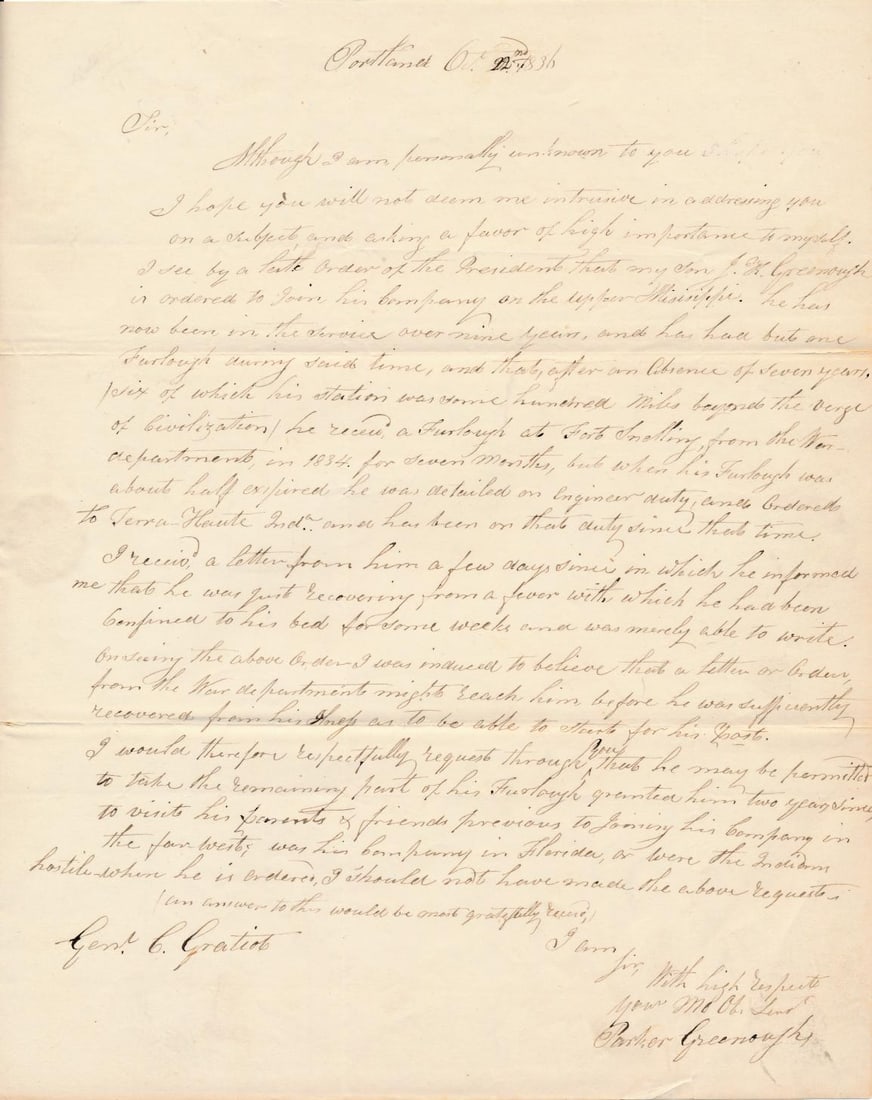 Portland Oct 22nd 1836
Sir,
Although I am personally unknown to you
I hope you will not deem me intrusive in addressing you
on a subject, and asking a favor of high importance to myself.
I see by a late order of the President that my son J. K. Greenough
is ordered to Join his Company on the upper Misisippi. he has
now been in the service over nine years, and has had but one
Furlough during said time, and that, after an Absence of seven years,
(six of which his station was some hundred Miles beyond the verge
of Civilization) he receivd, a Furlough at Fort Snelling, from the War-
department, in 1834. for seven Months, but when his Furlough was
about half expired he was detailed on Engineer duty, and Ordered
to Terra-Haute Inda. and has been on that duty since that time.
I receivd, a letter from him a few days since in which he informed
me that he was just recovering from a fever with which he had been
Confined to his bed for some weeks and was merely able to write.
On seeing the above Order I was induced to believe that a letter or Order,
from the War department might reach him, before he was sufficiently
recovered from his as to be able to start for his Post.
I would therefore respectfully request through you, that he may be permitted
to take the remaining part of his Furlough granted him two years since
to visit his parents & friends previous to Joining his Company in
the far west; was his Company in Florida, or were the Indians
hostile where he is ordered, I should not have made the above request.
(an answer to this would be most gratefully received,)
Genl. C. Gratiot
I am
Sir,
With high respect
your Mo Ob. Servt
Parker Greenough,